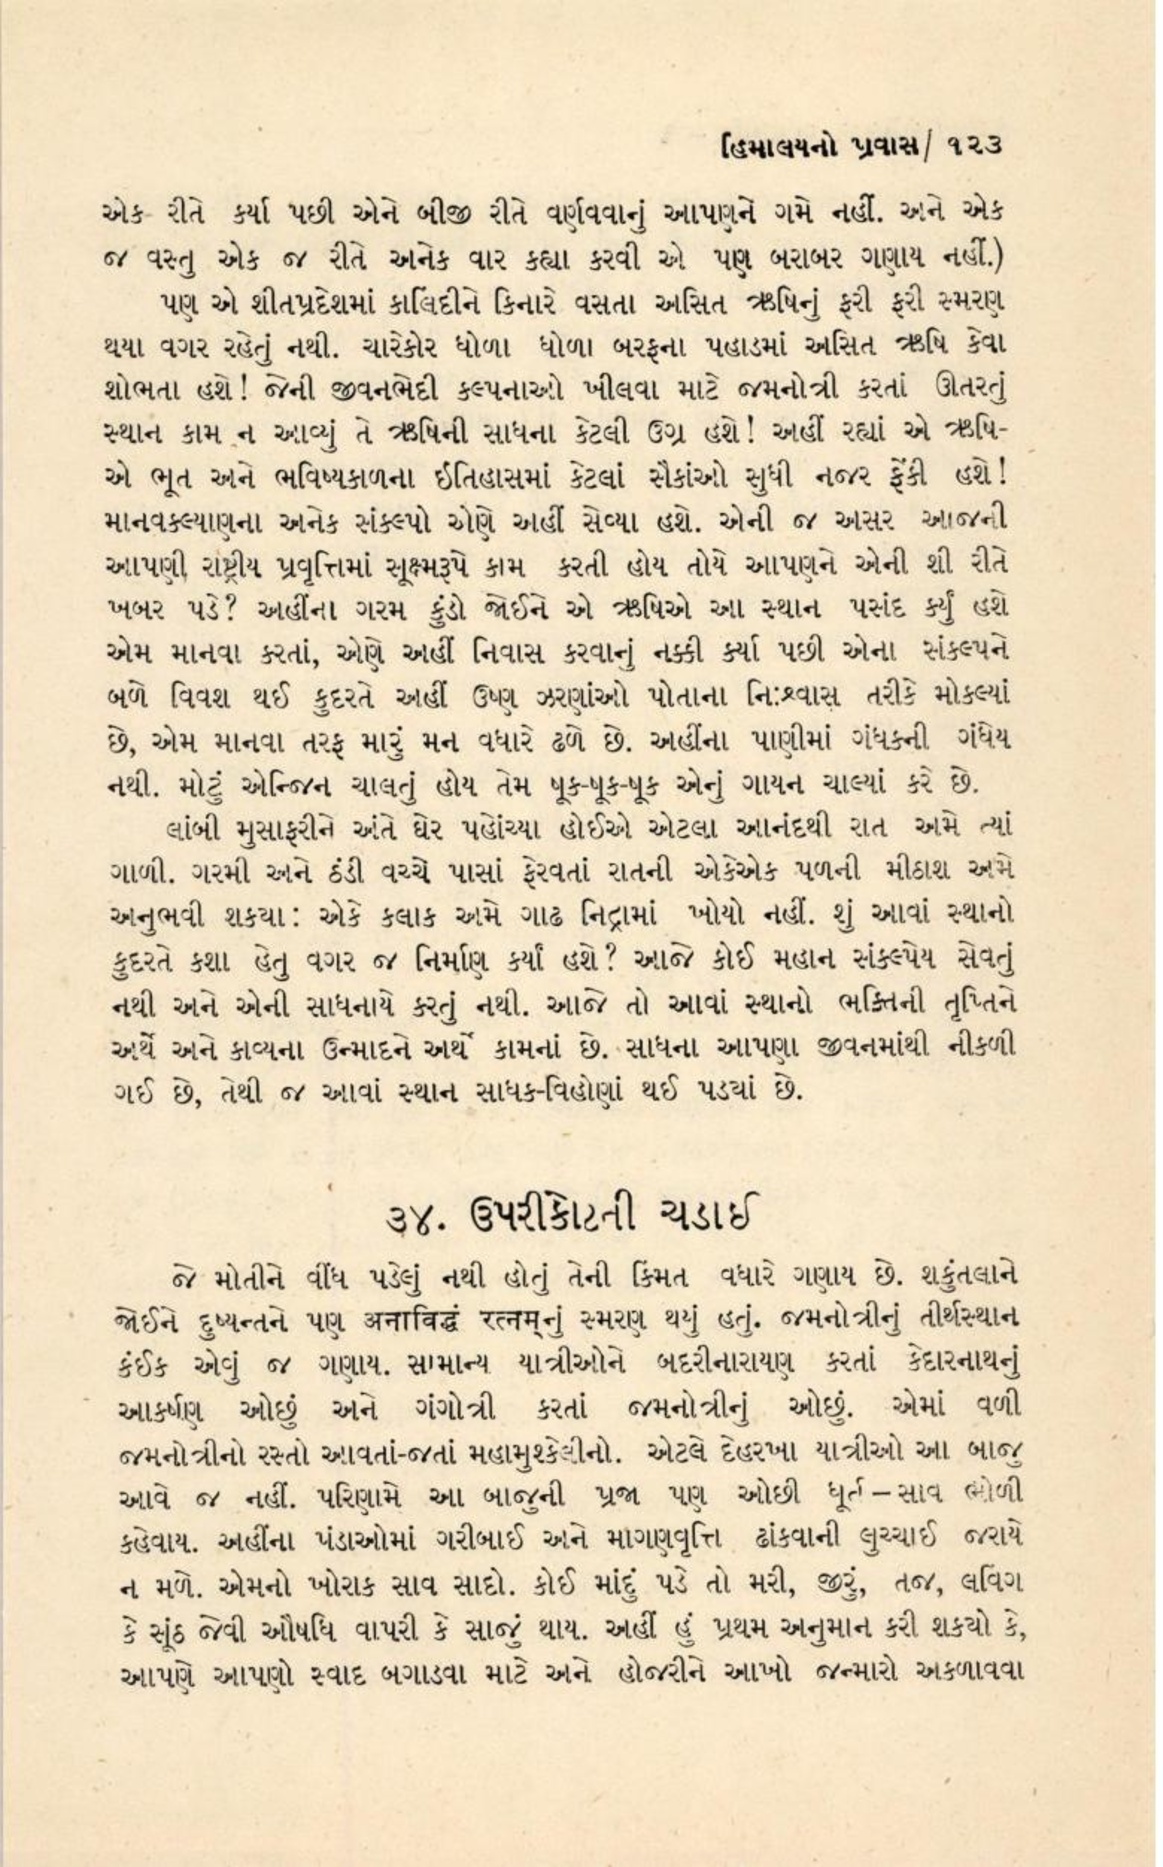 હિમાલયનો પ્રવાસ/ ૧૨૩
એક રીતે કર્યા પછી એને બીજી રીતે વર્ણવવાનું આપણને ગમે નહીં. અને એક
જ વસ્તુ એક જ રીતે અનેક વાર કહ્યા કરવી એ પણ બરાબર ગણાય નહીં.)
પણ એ શીતપ્રદેશમાં કાલિંદીને કિનારે વસતા અસિત ઋષિનું ફરી ફરી સ્મરણ
થયા વગર રહેતું નથી. ચારેકોર ધોળા ધોળા બરફના પહાડમાં અસિત ઋષિ કેવા
શોભતા હશે! જેની જીવનભેદી કલ્પનાઓ ખીલવા માટે જમનોત્રી કરતાં ઊતરતું
સ્થાન કામ ન આવ્યું તે ઋષિની સાધના કેટલી ઉગ્ર હશે! અહીં રહ્યાં એ ઋષિ-
એ ભૂત અને ભવિષ્યકાળના ઇતિહાસમાં કેટલાં સૈકાંઓ સુધી નજર ફેંકી હશે!
માનવકલ્યાણના અનેક સંકલ્પો એણે અહીં સેવ્યા હશે. એની જ અસર આજની
આપણી રાષ્ટ્રીય પ્રવૃત્તિમાં સૂક્ષ્મરૂપે કામ કરતી હોય તોયે આપણને એની શી રીતે
ખબર પડે? અહીંના ગરમ કુંડો જોઈને એ ઋષિએ આ સ્થાન પસંદ કર્યું હશે
એમ માનવા કરતાં, એણે અહીં નિવાસ કરવાનું નક્કી કર્યા પછી એના સંકલ્પને
બળે વિવશ થઈ કુદરતે અહીં ઉષ્ણ ઝરણાંઓ પોતાના નિઃશ્વાસ તરીકે મોકલ્યાં
છે, એમ માનવા તરફ મારું મન વધારે ઢળે છે. અહીંના પાણીમાં ગંધકની ગંધેય
નથી. મોટું એન્જિન ચાલતું હોય તેમ ષૂક-ષૂક-ષૂક એનું ગાયન ચાલ્યાં કરે છે.
લાંબી મુસાફરીને અંતે ઘેર પહોંચ્યા હોઈએ એટલા આનંદથી રાત અમે ત્યાં
ગાળી. ગરમી અને ઠંડી વચ્ચે પાસાં ફેરવતાં રાતની એકેએક પળની મીઠાશ અમે
અનુભવી શકયા: એકે કલાક અમે ગાઢ નિદ્રામાં ખોયો નહીં. શું આવાં સ્થાનો
કુદરતે કશા હેતુ વગર જ નિર્માણ કર્યાં હશે? આજે કોઈ મહાન સંકલ્પેય સેવતું
નથી અને એની સાધનાયે કરતું નથી. આજે તો આવાં સ્થાનો ભક્તિની તૃપ્તિને
અર્થે અને કાવ્યના ઉન્માદને અર્થે કામનાં છે. સાધના આપણા જીવનમાંથી નીકળી
ગઈ છે, તેથી જ આવાં સ્થાન સાધક-વિહોણાં થઈ પડયાં છે.
૩૪. ઉપરીકોટની ચડાઈ
જે મોતીને વીંધ પડેલું નથી હોતું તેની કિંમત વધારે ગણાય છે. શકુંતલાને
જોઈને દુષ્યન્તને પણ अनाविद्धं रत्नम्નું સ્મરણ થયું હતું. જમનોત્રીનું તીર્થસ્થાન
કંઈક એવું જ ગણાય. સામાન્ય યાત્રીઓને બદરીનારાયણ કરતાં કેદારનાથનું
આકર્ષણ ઓછું અને ગંગોત્રી કરતાં જમનોત્રીનું ઓછું. એમાં વળી
જમનોત્રીનો રસ્તો આવતાં-જતાં મહામુશ્કેલીનો. એટલે દેહરખા યાત્રીઓ આ બાજુ
આવે જ નહીં. પરિણામે આ બાજુની પ્રજા પણ ઓછી ધૂર્ત – સાવ ભોળી
કહેવાય. અહીંના પંડાઓમાં ગરીબાઈ અને માગણવૃત્તિ ઢાંકવાની લુચ્ચાઈ જરાયે
ન મળે. એમનો ખોરાક સાવ સાદો. કોઈ માંદું પડે તો મરી, જીરું, તજ, લવિંગ
કે સૂંઠ જેવી ઔષધિ વાપરી કે સાજું થાય. અહીં હું પ્રથમ અનુમાન કરી શકયો કે,
આપણે આપણો સ્વાદ બગાડવા માટે અને હોજરીને આખો જન્મારો અકળાવવા